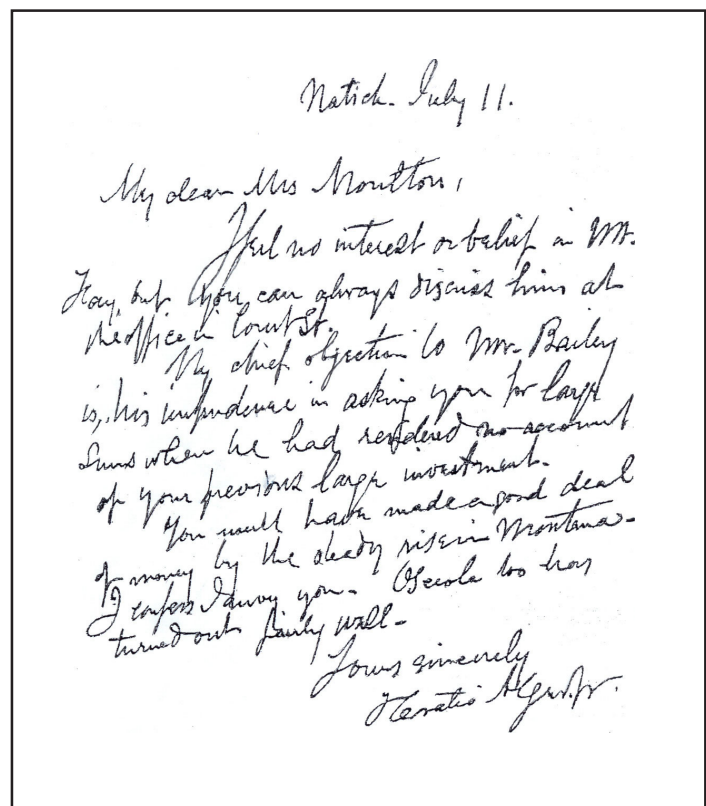 Natick. July 11.
My dear Mrs Moulton,
I feel no interest or belief in Mr.
Fay, but you can always discuss him at
the office in Court St.
My chief objection to Mr. Bailey
is, his impudence in asking you for large
sums when he had rendered no account
of your previous large investment.
You must have made a good deal
of money by the steady rise in Montana-
I confess I envy you. Osceola too has
turned out fairly well-
Yours sincerely
Horatio Alger. Jr.